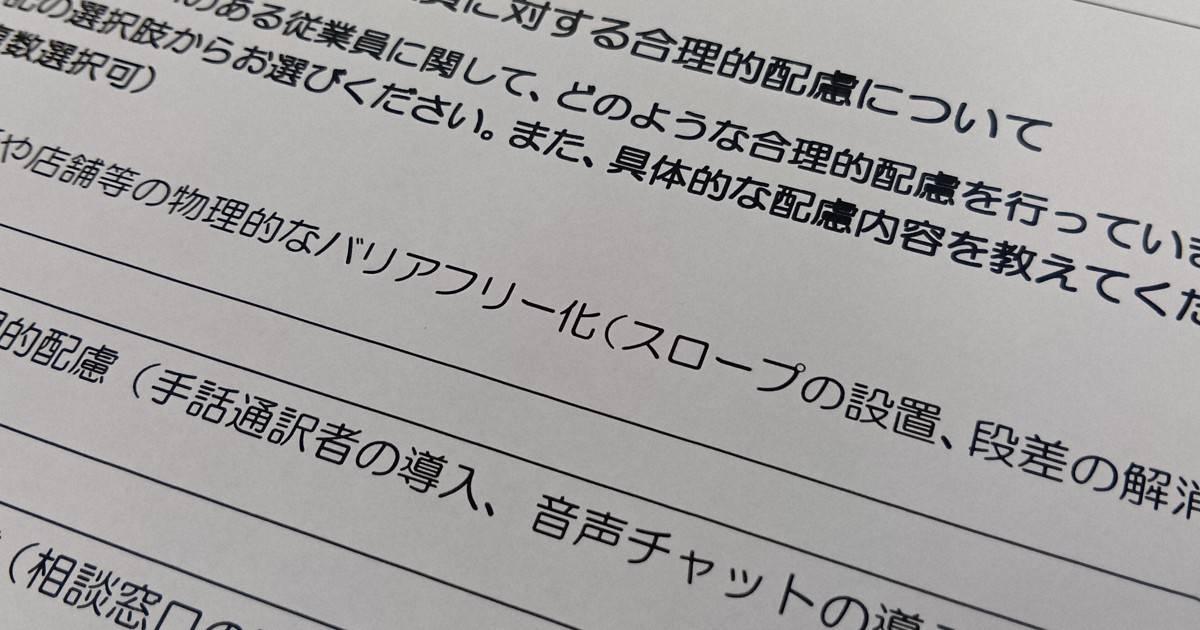 に対する合理的配慮について
のある従業員に関して、どのような合理的配慮を行ってい
の選択肢からお選びください。また、具体的な配慮内容を教えてくだ
複数選択可）
や店舗等の物理的なバリアフリー化（スロープの設置、段差の解消
的配慮（手話通訳者の導入、音声チャットの導
（相談窓口の